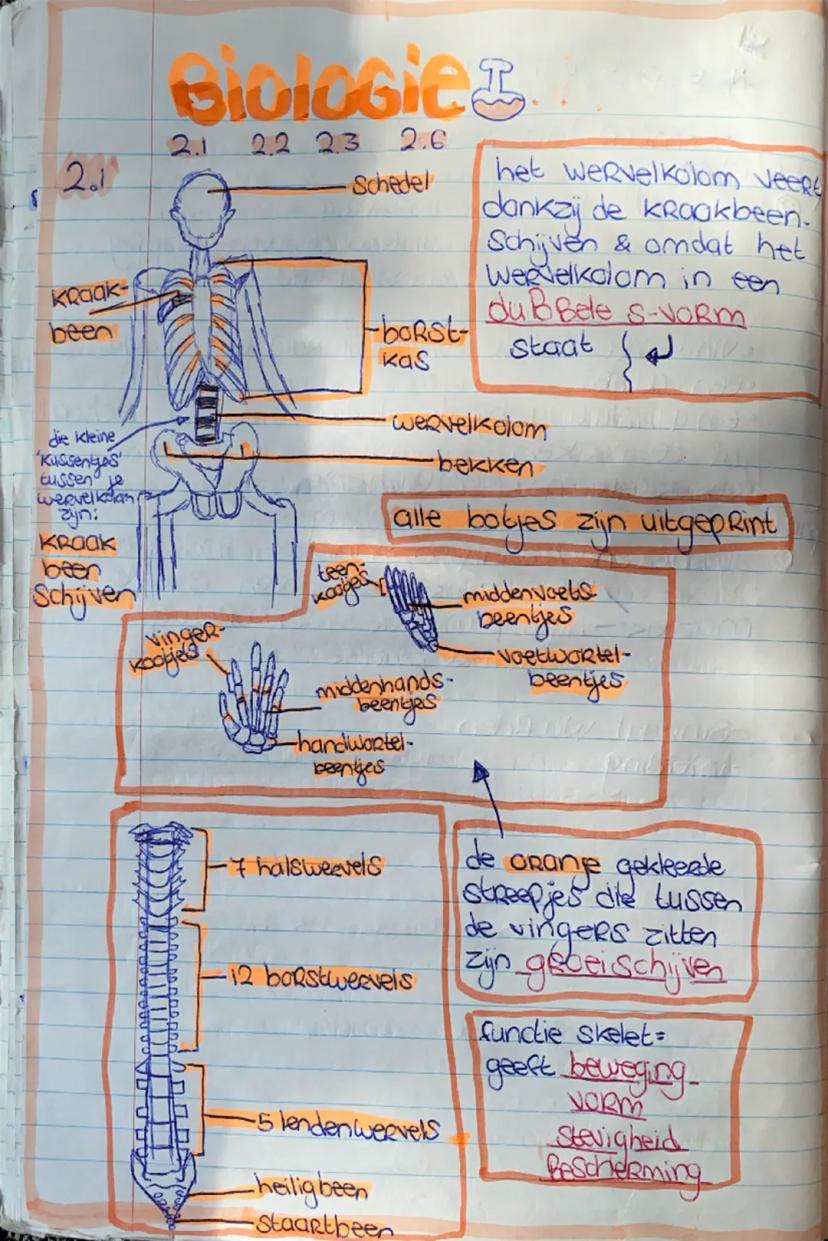 Biologie
2.1 2.2 2.3 2.6
2.1
schedel
kraak-
been
borst-
kas
wervelkolom
bekken
die kleine
'kussentjes'
tussen je
wervelkolom
zijn:
kraak
been
schijven
het wervelkolom veert
dankzij de kraakbeen-
schijven & omdat het
wervelkolom in een
dubbele s-vorm
staat
alle botjes zijn uitgeprint
teen-
kootjes
middenvoets-
beentjes
voetwortel-
beentjes
vinger-
kootjes
middenhands-
beentjes
handwortel-
beentjes
7 halswervels
12 borstwervels
5 lendenwervels
heiligbeen
staartbeen
de oranje gekleerde
streepjes die tussen
de vingers zitten
zijn groeischijven
functie skelet=
geeft beweging
vorm
stevigheid
bescherming